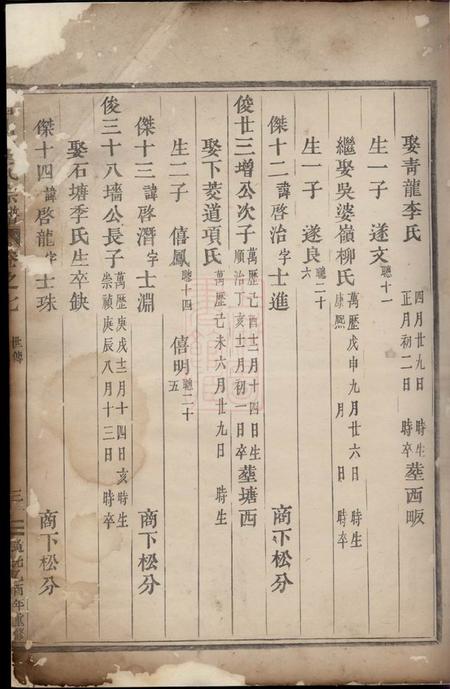 娶青龍李氏 四月廿九日 時生 正月初二日 時卒 塟西畈
生一子 遂文 聽十一
繼娶吳婆嶺柳氏 萬歷戊申九月廿六日 時生 康熙 月 日 時卒
生一子 遂良 聽二十六
傑十二諱啓治字士進 商下松分
俊廿三增公次子 萬歷己酉十二月十四日 生 順治丁亥十二月初一日 卒 塟塘西
娶下菱道項氏 萬歷己未六月廿九日 時生
生二子 僖鳳 聽十四 僖明 聽二十五
傑十三諱啓潛字士淵 商下松分
俊三十八墻公長子 萬歷庚戌十二月十四日亥時生 崇禎庚辰八月十三日 時卒
娶石塘季氏生卒缺
傑十四諱啓龍字士珠 商下松分
卷之七 世傳 三 酉年重修